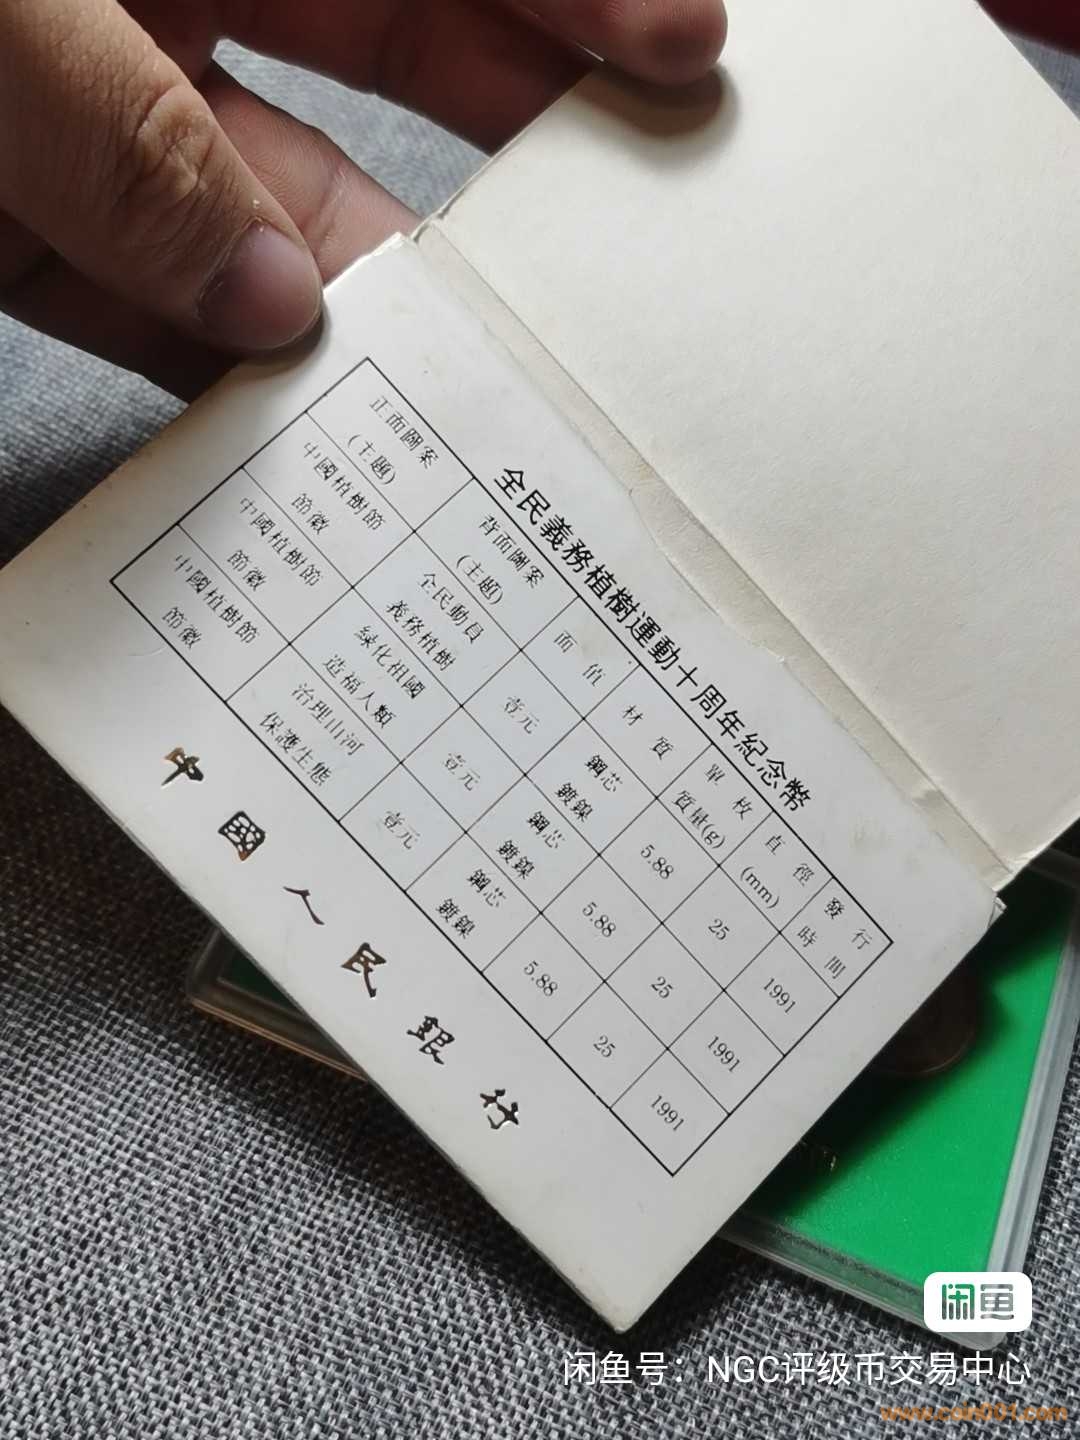 全民義務植樹運動十周年紀念幣
正面圖案
(主題)
背面圖案
(主題)
面值
材質
單枚
質量(g)
直徑
(mm)
發行
時間
中國植樹節
節徽
全民動員
義務植樹
壹元
鋼芯
鍍鎳
5.88
25
1991
中國植樹節
節徽
綠化祖國
造福人類
壹元
鋼芯
鍍鎳
5.88
25
1991
中國植樹節
節徽
治理山河
保護生態
壹元
鋼芯
鍍鎳
5.88
25
1991
中國人民銀行
闲鱼
闲鱼号：NGC评级币交易中心
www.coin001.com